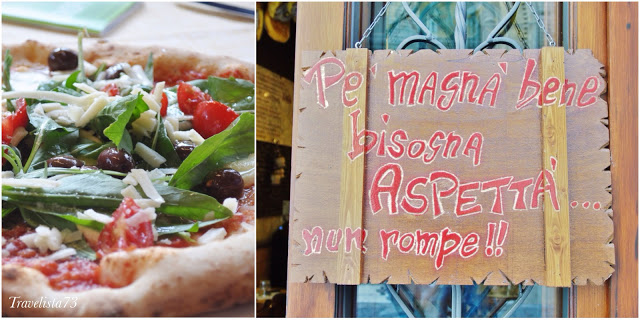 Pe' magnà bene
bisogna
ASPETTÀ...
nun rompe!!
Travelista73